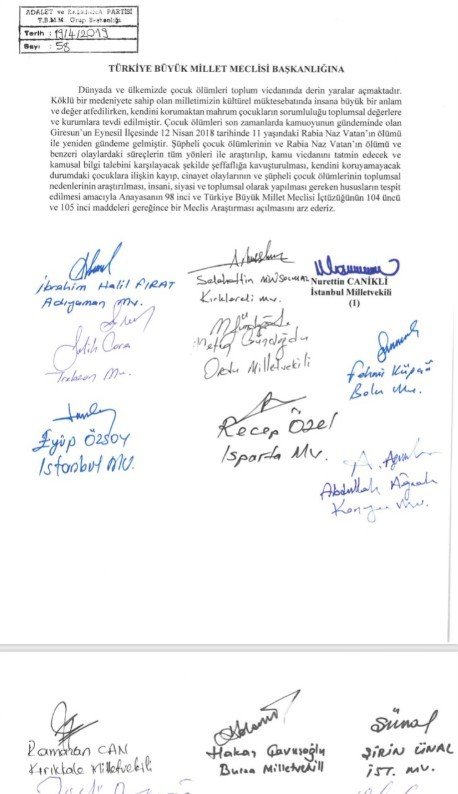 ADALET ve KALKINMA PARTİSİ
T.B.M.M. Grup Başkanlığı
Tarih : 19/4/2019
Sayı : 58
TÜRKİYE BÜYÜK MİLLET MECLİSİ BAŞKANLIĞINA
Dünyada ve ülkemizde çocuk ölümleri toplum vicdanında derin yaralar açmaktadır.
Köklü bir medeniyete sahip olan milletimizin kültürel müktesebatında insana büyük bir anlam
ve değer atfedilirken, kendini korumaktan mahrum çocukların sorumluluğu toplumsal değerlere
ve kurumlara tevdi edilmiştir. Çocuk ölümleri son zamanlarda kamuoyunun gündeminde olan
Giresun'un Eynesil İlçesinde 12 Nisan 2018 tarihinde 11 yaşındaki Rabia Naz Vatan'ın ölümü
ile yeniden gündeme gelmiştir. Şüpheli çocuk ölümlerinin ve Rabia Naz Vatan'ın ölümü ve
benzeri olaylardaki süreçlerin tüm yönleri ile araştırılıp, kamu vicdanını tatmin edecek ve
kamusal bilgi talebini karşılayacak şekilde şeffaflığa kavuşturulması, kendini koruyamayacak
durumdaki çocuklara ilişkin kayıp, cinayet olaylarının ve şüpheli çocuk ölümlerinin toplumsal
nedenlerinin araştırılması, insani, siyasi ve toplumsal olarak yapılması gereken hususların tespit
edilmesi amacıyla Anayasanın 98 inci ve Türkiye Büyük Millet Meclisi İçtüzüğünün 104 üncü
ve 105 inci maddeleri gereğince bir Meclis Araştırması açılmasını arz ederiz.
İbrahim Halil FIRAT
Adıyaman Mv.
Selahattin MİNSOLMAZ
Kırklareli Mv.
Nurettin CANİKLİ
İstanbul Milletvekili
(1)
Salih Cora
Trabzon Mv.
Metin Gündoğdu
Ordu Milletvekili
Fehmi Küpçü
Bolu Mv.
Eyüp ÖZSOY
İstanbul MV.
Recep ÖZEL
Isparta Mv.
Abdullah Ağralı
Konya Mv.
Ramazan CAN
Kırıkkale Milletvekili
Hakan Çavuşoğlu
Bursa Milletvekili
Şirin ÜNAL
İST. MV.